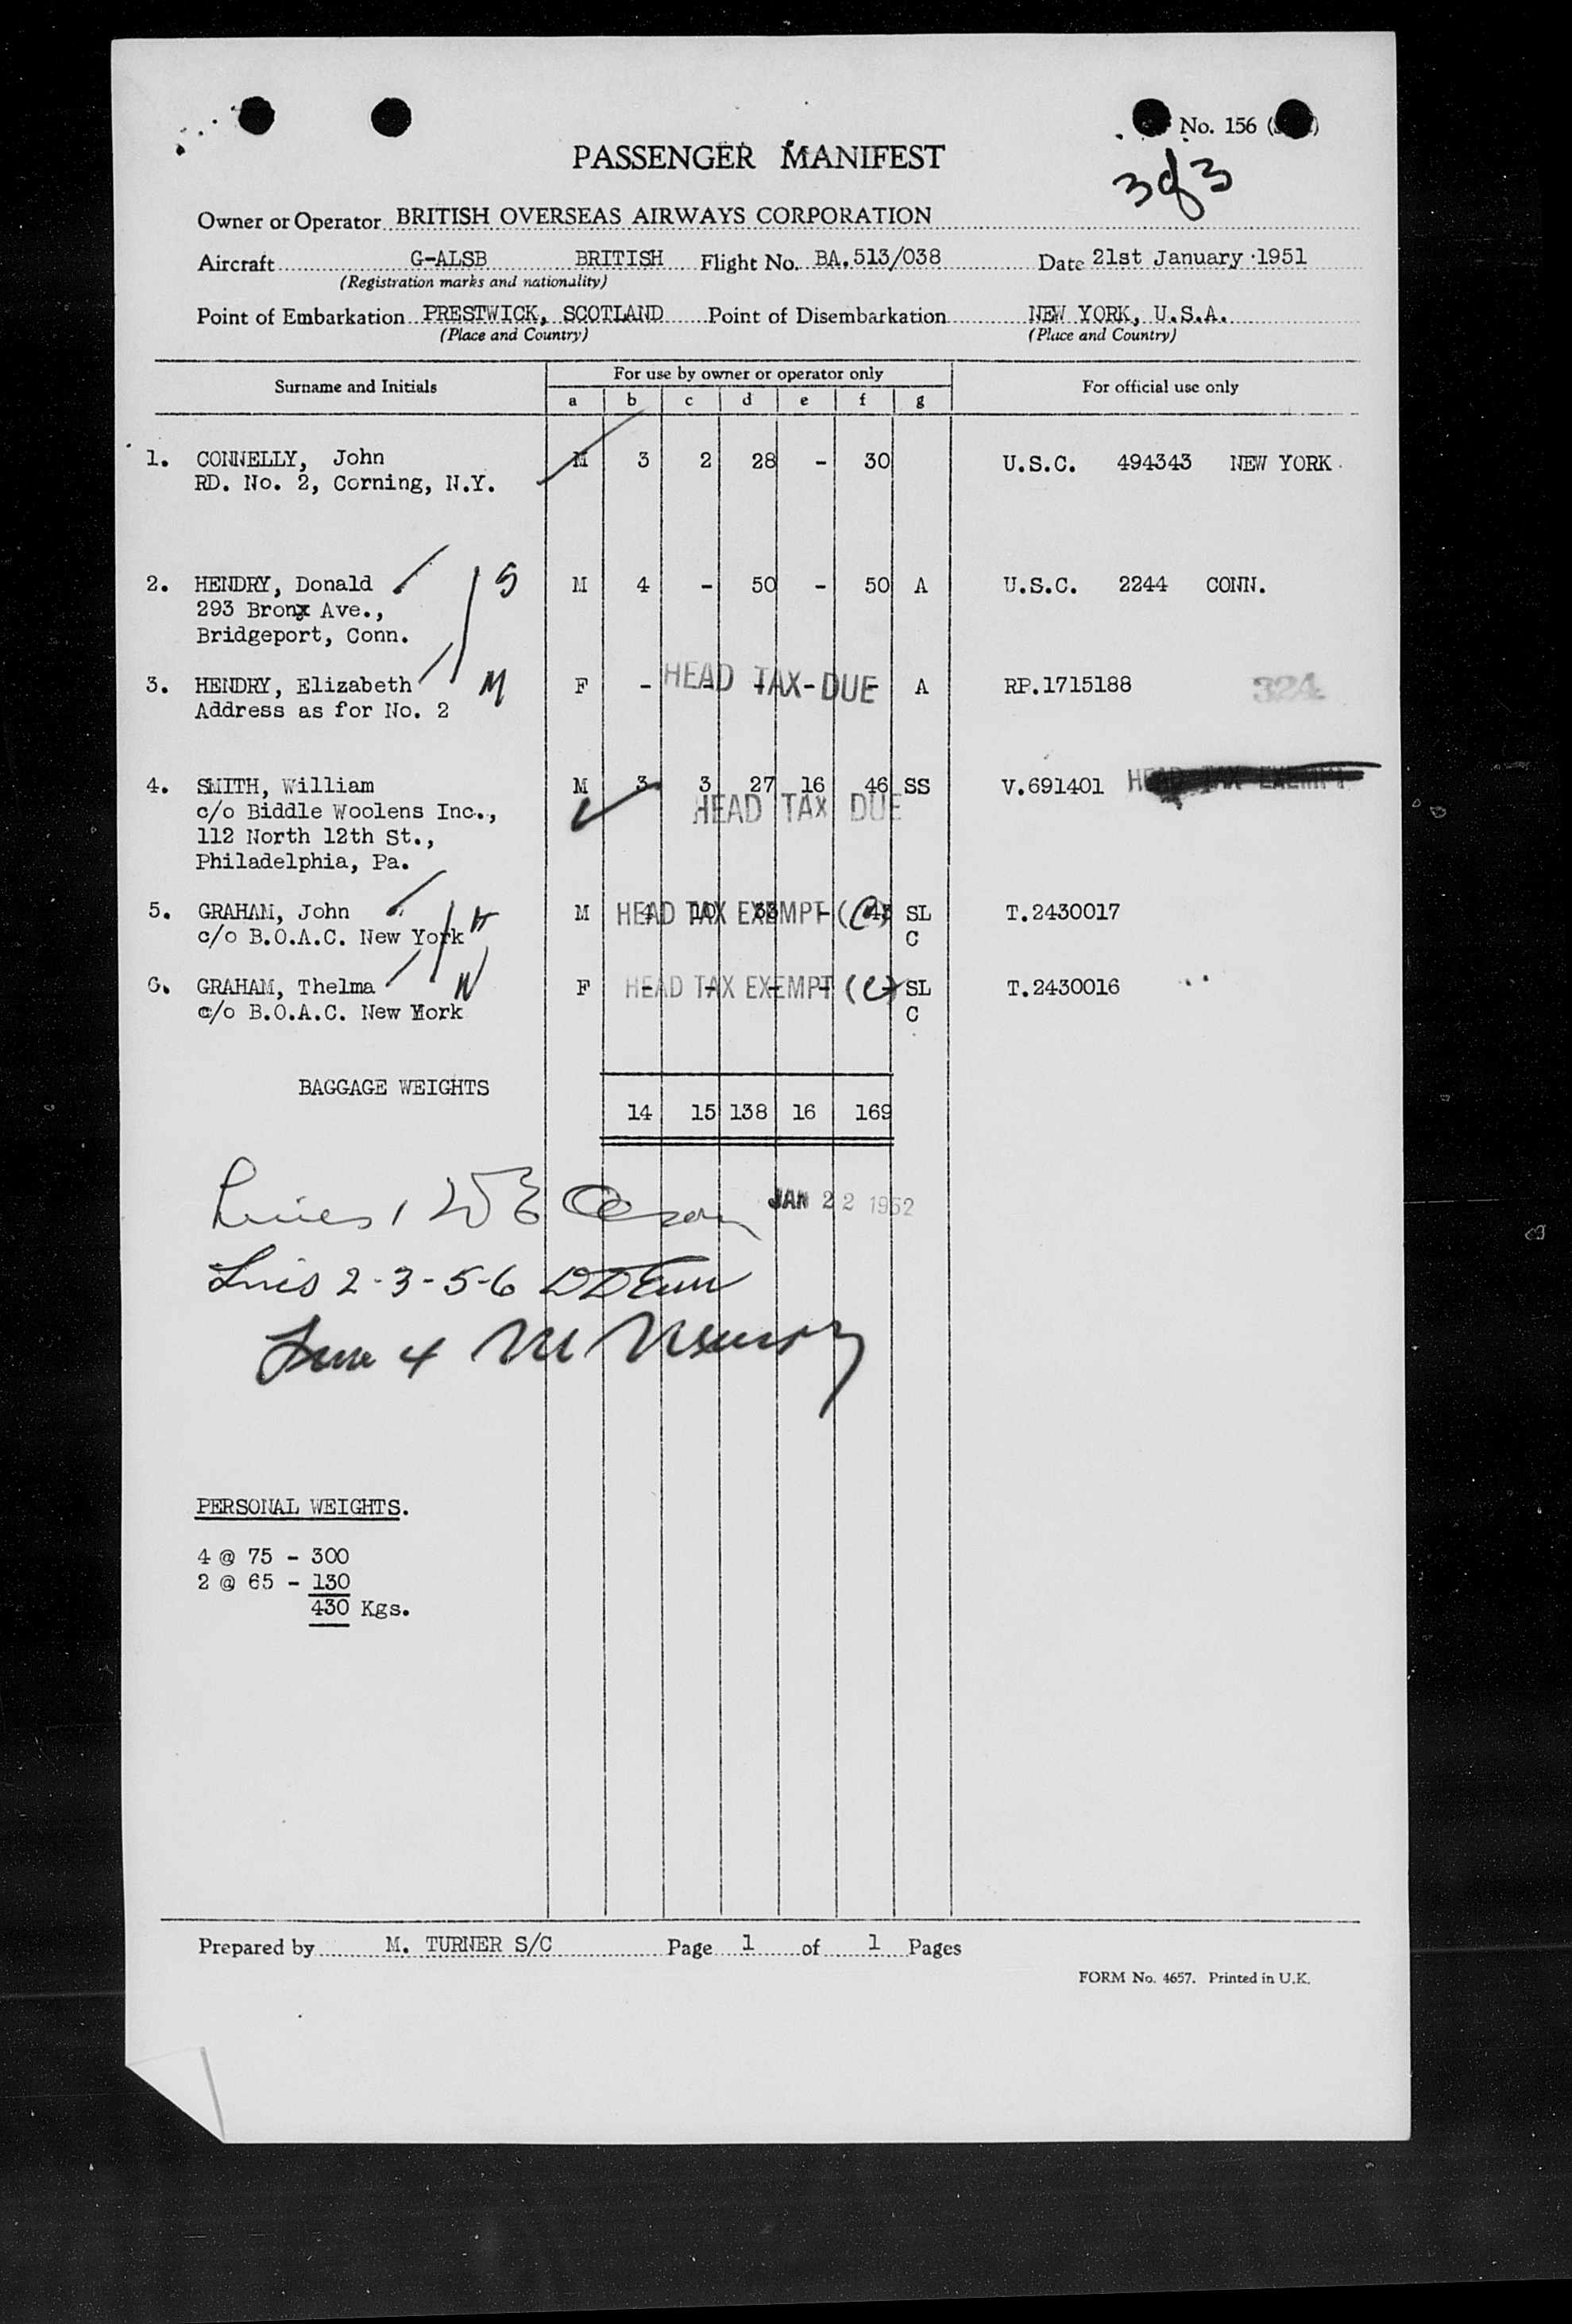 No. 156
3 of 3
PASSENGER MANIFEST
Owner or Operator BRITISH OVERSEAS AIRWAYS CORPORATION
Aircraft G-ALSB BRITISH Flight No. BA.513/038 Date 21st January 1951
(Registration marks and nationality)
Point of Embarkation PRESTWICK, SCOTLAND Point of Disembarkation NEW YORK, U.S.A.
(Place and Country) (Place and Country)
Surname and Initials For use by owner or operator only For official use only
a b c d e f g
1. CONNELLY, John M 3 2 28 - 30 U.S.C. 494343 NEW YORK
RD. No. 2, Corning, N.Y.
2. HENDRY, Donald S M 4 - 50 - 50 A U.S.C. 2244 CONN.
293 Bronx Ave.,
Bridgeport, Conn.
3. HENDRY, Elizabeth M F - HEAD TAX DUE A RP.1715188 324
Address as for No. 2
4. SMITH, William M 3 3 27 16 46 SS V.691401 HEAD TAX EXEMPT
c/o Biddle Woolens Inc., HEAD TAX DUE
112 North 12th St.,
Philadelphia, Pa.
5. GRAHAM, John M 4 10 33 - 43 SL T.2430017
HEAD TAX EXEMPT
c/o B.O.A.C. New York C
6. GRAHAM, Thelma F HEAD TAX EXEMPT SL T.2430016
c/o B.O.A.C. New York C
BAGGAGE WEIGHTS
14 15 138 16 169
Lines 1 JAN 22 1952
Lines 2-3-5-6
Line 4
PERSONAL WEIGHTS.
4 @ 75 - 300
2 @ 65 - 130
430 Kgs.
Prepared by M. TURNER S/C Page 1 of 1 Pages
FORM No. 4657. Printed in U.K.